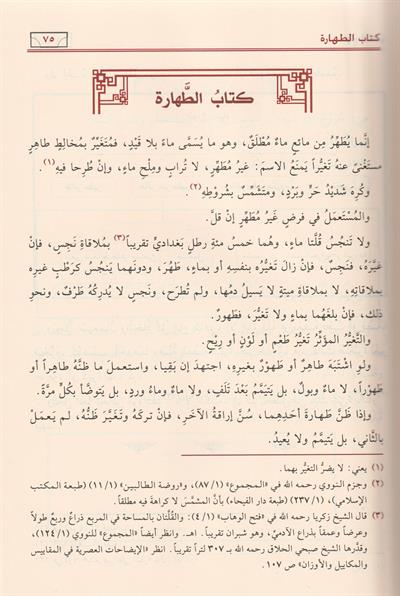 كتاب الطهارة
٧٥
كتابُ الطَّهارة
إنَّما يُطَهِّرُ مِن مائعٍ ماءٌ مُطْلَقٌ، وهو ما يُسَمَّى ماءً بلا قَيْدٍ، فمُتَغَيِّرٌ بمُخالِطٍ طاهِرٍ
مستَغْنىً عنهُ تَغيُّراً يَمنَعُ الاسمَ: غيرُ مُطَهِّرٍ، لا تُرابٍ ومِلْحِ ماءٍ، وإنْ طُرِحا فيهِ(١).
وكُرِهَ شَديدُ حَرٍّ وبَرْدٍ، ومتَشَمِّسٌ بشُروطِهِ(٢).
والمُستَعمَلُ في فرضٍ غَيرُ مُطَهِّرٍ إنْ قلَّ.
ولا تَنجُسُ قُلَّتا ماءٍ، وهُما خمسُ مئةِ رطلٍ بَغداديٍّ تقريباً(٣) بمُلاقاةِ نَجِسٍ، فإنْ
غَيَّرَهُ، فنَجِسٌ، فإنْ زالَ تَغيُّرُه بنفسِهِ أو بماءٍ، طَهُرَ، ودونَهما يَنجُسُ كرَطْبٍ غيرِه
بملاقاتِهِ، لا بملاقاةِ ميتةٍ لا يَسيلُ دمُها، ولم تُطرَح، ونَجسٍ لا يُدرِكُهُ طَرْفٌ، ونحوِ
ذلك، فإنْ بلَغَهُما بماءٍ ولا تَغيُّرَ، فطَهورٌ.
والتَّغيُّرُ المؤثِّرُ تَغيُّرُ طَعْمٍ أو لَوْنٍ أو رِيْحٍ.
ولوِ اشْتَبَهَ طاهِرٌ أو طَهورٌ بغيرِهِ، اجتهدَ إن بَقِيا، واستعملَ ما ظنَّهُ طاهِراً أو
طَهوْراً، لا ماءٌ وبولٌ، بل يَتيَمَّمُ بعدَ تَلَفٍ، ولا ماءٌ وماءُ وردٍ، بل يَتوضَّأُ بكلٍّ مرَّةً.
وإذا ظَنَّ طَهارةَ أحدِهِما، سُنَّ إراقةُ الآخَرِ، فإنْ تركَهُ وتَغَيَّرَ ظَنُّهُ، لم يَعملْ
بالثَّاني، بل يَتيَمَّمُ ولا يُعيدُ.
(١) يعني: لا يضرُّ التغيُّر بهما.
(٢) وجزم النووي رحمه الله في «المجموع» (٨٧/١)، و«روضة الطالبين» (١١/١) (طبعة المكتب
الإسلامي)، (٢٣٧/١) (طبعة دار الفيحاء) بأنَّ المشمَّسَ لا كراهةَ فيه مطلقاً.
(٣) قال الشيخ زكريا رحمه الله في «فتح الوهاب» (٤/١): والقُلَّتان بالمساحة في المربع ذراعٌ وربعٌ طولاً
وعرضاً وعمقاً بذراع الآدميِّ، وهو شبران تقريباً. اهـ. وانظر أيضاً «المجموع» للنووي (١٢٤/١)،
وقدَّرها الشيخ صبحي الحلاق رحمه الله بـ ٣٠٧ لتراً تقريباً. انظر «الإيضاحات العصرية في المقاييس
والمكاييل والأوزان» ص ١٠٧.